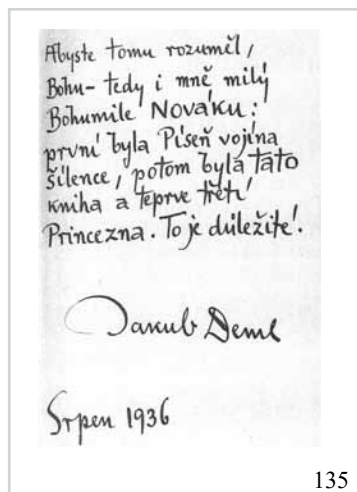 Abyste tomu rozuměl,
Bohu - tedy i mně milý
Bohumile Nováku:
první byla Píseň vojína
šílence, potom byla tato
kniha a teprve třetí
Princezna. To je důležité!
Jakub Deml
Srpen 1936
135